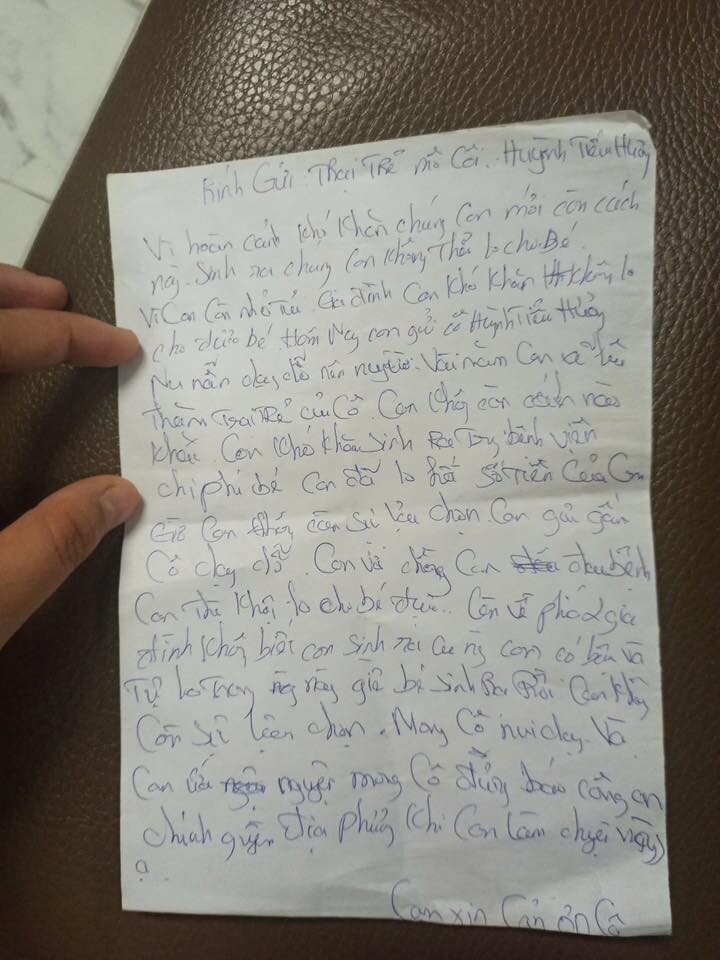 Kính Gửi Trại Trẻ mồ Côi. Huỳnh Tiểu Hường
Vì hoàn cảnh khó khăn chúng con mới còn cách
này. Sinh ra chúng con không thể lo cho bé.
Vì con còn nhỏ Gia đình con khó khăn không lo
cho đứa bé Hôm Nay con gửi cô Huỳnh Tiểu Hường
dạy dỗ nên người. Vài năm con sẽ
thăm trại trẻ của cô. Con không còn cách nào
khác. Con khó khăn sinh bệnh viện
chi phí bé con đã lo hết số tiền của con
Giờ con không còn sự lựa chọn. Con gửi gấm
cô dạy dỗ. Con và chồng con đau bệnh
con lo cho bé được.. Còn về phía gia
đình không biết con sinh ra con có bầu và
Tự lo giờ bé sinh Ra Rồi con không
Còn sự chọn. Mong Cô nuôi dạy. Và
Con nguyện mong Cô đừng báo công an
chính quyền địa phương khi con làm chuyện này
ạ
Con xin Cảm ơn Cô